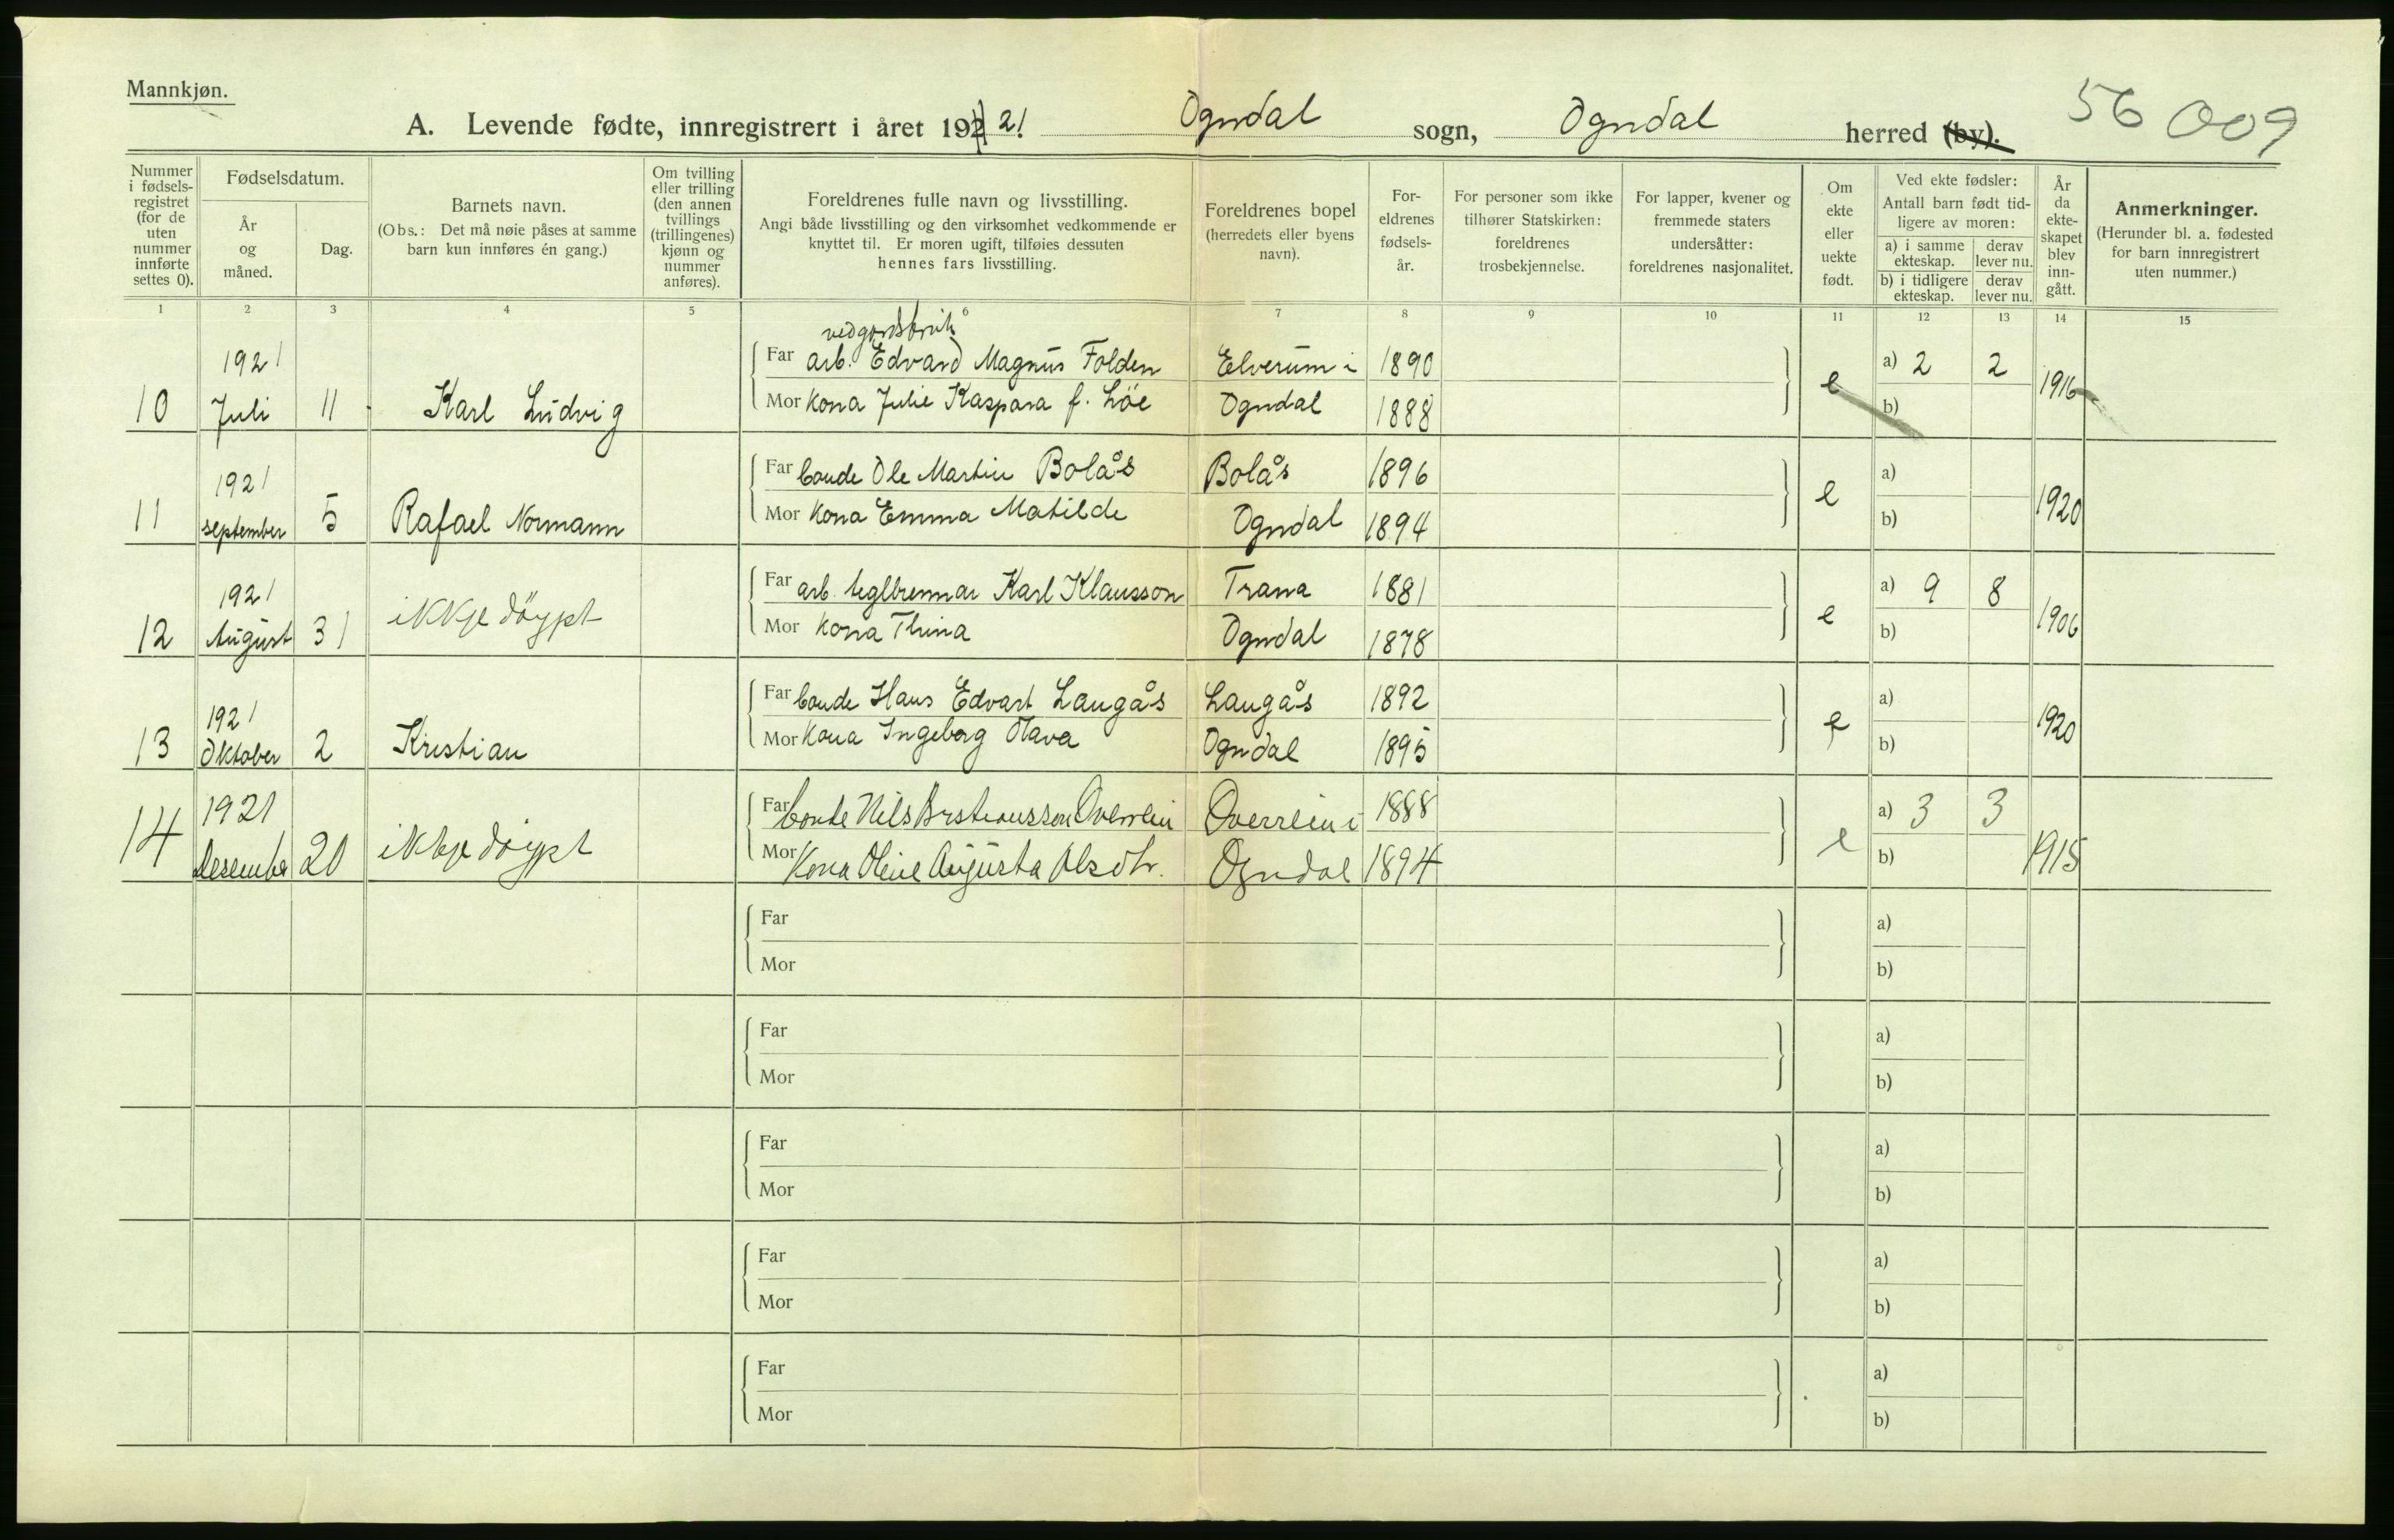 Mannkjøn.
A. Levende fødte, innregistrert i året 192 21 Ogndal sogn, Ogndal herred (by). 56 009
Nummer i fødsels-registret (for de uten nummer innførte settes 0).
Fødselsdatum.
År og måned.
Dag.
Barnets navn.
(Obs.: Det må nøie påses at samme barn kun innføres én gang.)
Om tvilling eller trilling (den annen tvillings (trillingenes) kjønn og nummer anføres).
Foreldrenes fulle navn og livsstilling.
Angi både livsstilling og den virksomhet vedkommende er knyttet til. Er moren ugift, tilføies dessuten hennes fars livsstilling.
Foreldrenes bopel (herredets eller byens navn).
For-eldrenes fødsels-år.
For personer som ikke tilhører Statskirken: foreldrenes trosbekjennelse.
For lapper, kvener og fremmede staters undersåtter: foreldrenes nasjonalitet.
Om ekte eller uekte født.
Ved ekte fødsler: Antall barn født tid-ligere av moren:
a) i samme ekteskap.
derav lever nu.
b) i tidligere ekteskap.
derav lever nu.
År da ekte-skapet blev inn-gått.
Anmerkninger.
(Herunder bl. a. fødested for barn innregistrert uten nummer.)
1 2 3 4 5 6 7 8 9 10 11 12 13 14 15
ved gardsbruk
1921 Far arb. Edvard Magnus Folden Elverum i 1890 a) 2 2
10 Juli 11 Karl Ludvig Mor Kona Julie Kaspara f. Löe Ogndal 1888 e b) 1916
1921 Far bonde Ole Martin Bolås Bolås 1896 a)
11 september 5 Rafael Normann Mor Kona Emma Matilde Ogndal 1894 e b) 1920
1921 Far arb. teglbrennar Karl Klausson Trana 1881 a) 9 8
12 August 31 ikkje döypt Mor Kona Thina Ogndal 1878 e b) 1906
1921 Far bonde Hans Edvart Langås Langås 1892 a)
13 Oktober 2 Kristian Mor Kona Ingeborg Olava Ogndal 1895 e b) 1920
1921 Far bonde Nils Overrein Overrein i 1888 a) 3 3
14 Desember 20 ikkje döypt Mor Kona Oline Augusta Olsdtr. Ogndal 1894 e b) 1915
Far a)
Mor b)
Far a)
Mor b)
Far a)
Mor b)
Far a)
Mor b)
Far a)
Mor b)